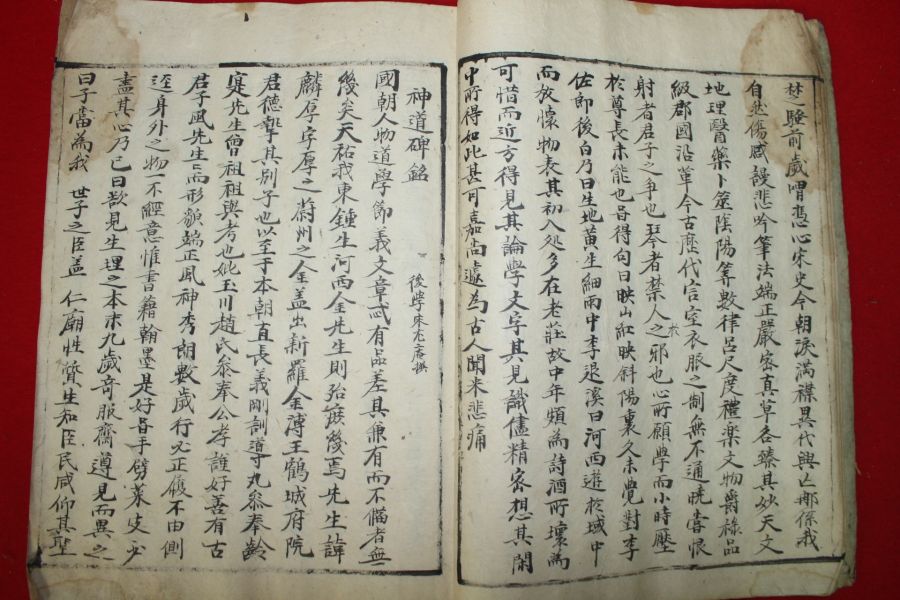 楚騷前歲喟憑心宋史今朝淚滿襟異代興亡那係我
自然傷感謾悲吟筆法端正嚴密真草各臻其妙天文
地理醫藥卜筮陰陽筭數律呂尺度禮樂文物爵祿品
級郡國沿革今古歷代宮室衣服之制無不通曉嘗恨
射者君子之爭也琴者禁人之邪也心所願學而小時壓
於尊長未能也甞得句曰映山紅映斜陽裏久未覺對李
佐郎後白乃曰生地黃生細雨中李退溪曰河西遊於域中
而放懷物表其初入処多在老莊故中年頗為詩酒所壞為
可惜而近方得見其論學文字其見識儘精密想其閑
中所得如此甚可嘉尚遽為古人聞来悲痛
神道碑銘
後學宋尤庵撰
國朝人物道學節義文章忒有品差其兼有而不偏者無
後矣天祐我東鍾生河西金先生則殆庶後焉先生諱
麟厚字厚之蔚州之金盖出新羅金溥王鶴城府院
君德摯其別子也以至于本朝直長義剛訓導丸叅奉齡
寔先生曾祖祖與考也妣玉川趙氏叅奉公孝謹好善有古
君子風先生二而形貌端正風神秀朗數歲行必正履不由側
逕身外之物一不經意惟書籍翰墨是好甞手劈菜必
盡其心乃已曰欲見生理之本末九歲奇服齋遵見而異之
曰子當為我 世子之臣盖 仁廟性質生知臣民咸仰其聖